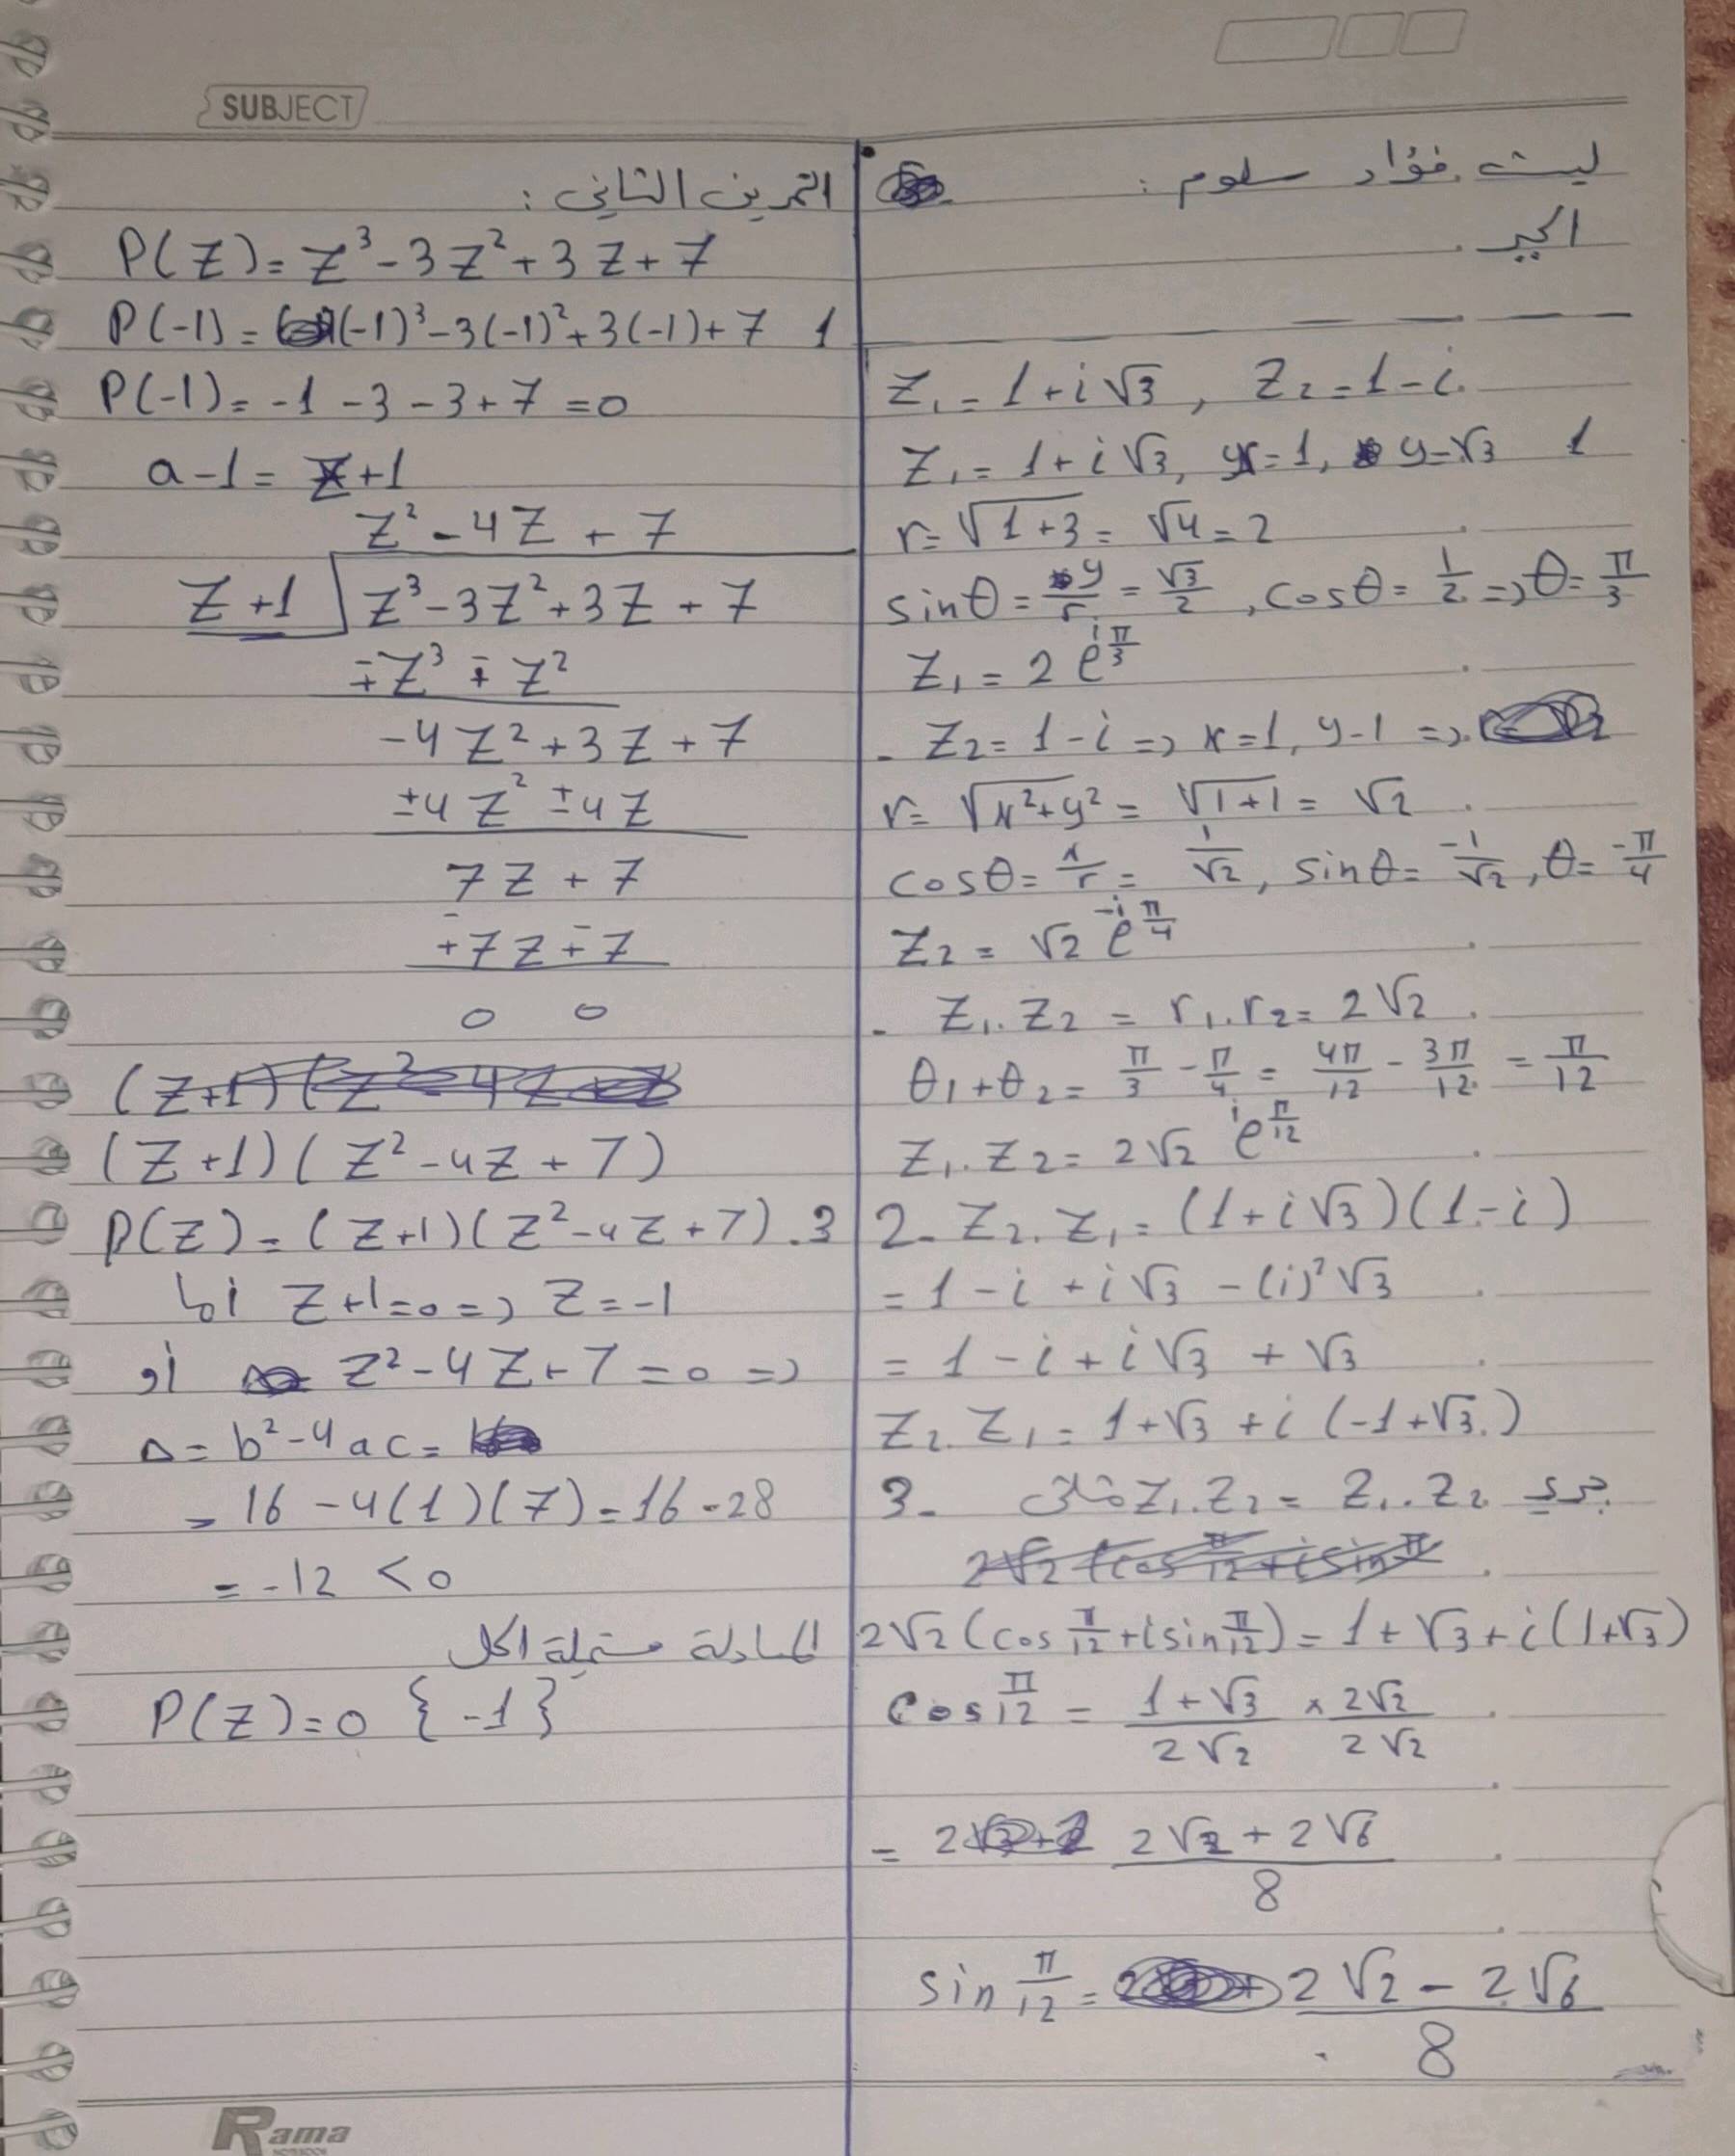 SUBJECT
ليث فؤاد سلوم :
الجبر
Z₁ = 1 + i√3 , Z₂ = 1 - i
Z₁ = 1 + i√3, x = 1, y = √3 1
r = √1+3 = √4 = 2
sinθ = y/r = √3/2 , cosθ = 1/2 => θ = π/3
Z₁ = 2 e^{iπ/3}
- Z₂ = 1 - i => x = 1, y - 1 =>
r = √x²+y² = √1+1 = √2
cosθ = x/r = 1/√2, sinθ = -1/√2, θ = -π/4
Z₂ = √2 e^{-iπ/4}
- Z₁.Z₂ = r₁.r₂ = 2√2
θ₁ + θ₂ = π/3 - π/4 = 4π/12 - 3π/12 = π/12
Z₁.Z₂ = 2√2 e^{iπ/12}
2- Z₂.Z₁ = (1 + i√3)(1 - i)
= 1 - i + i√3 - (i)²√3
= 1 - i + i√3 + √3
Z₂.Z₁ = 1 + √3 + i(-1 + √3)
3- جبري Z₁.Z₂ = Z₁.Z₂ مثلثي
2√2(cos π/12 + i sin π/12) = 1 + √3 + i(1+√3)
cos π/12 = 1+√3/2√2 × 2√2/2√2
= 2√2 + 2√6/8
sin π/12 = 2√2 - 2√6/8
التمرين الثاني :
P(Z) = Z³ - 3Z² + 3Z + 7
P(-1) = (-1)³ - 3(-1)² + 3(-1) + 7 1
P(-1) = -1 - 3 - 3 + 7 = 0
a - 1 = Z + 1
Z² - 4Z + 7
Z + 1 Z³ - 3Z² + 3Z + 7
∓Z³ ∓ Z²
-4Z² + 3Z + 7
±4Z² ±4Z
7Z + 7
∓7Z ∓ 7
0 0
(Z+1)(Z² - 4Z + 7)
P(Z) = (Z+1)(Z² - 4Z + 7) .3
اما Z + 1 = 0 => Z = -1
أو Z² - 4Z + 7 = 0 =>
Δ = b² - 4ac =
= 16 - 4(1)(7) = 16 - 28
= -12 < 0
المعادلة مستحيلة الحل
P(Z) = 0 {-1}
Rama
NOTEBOOK